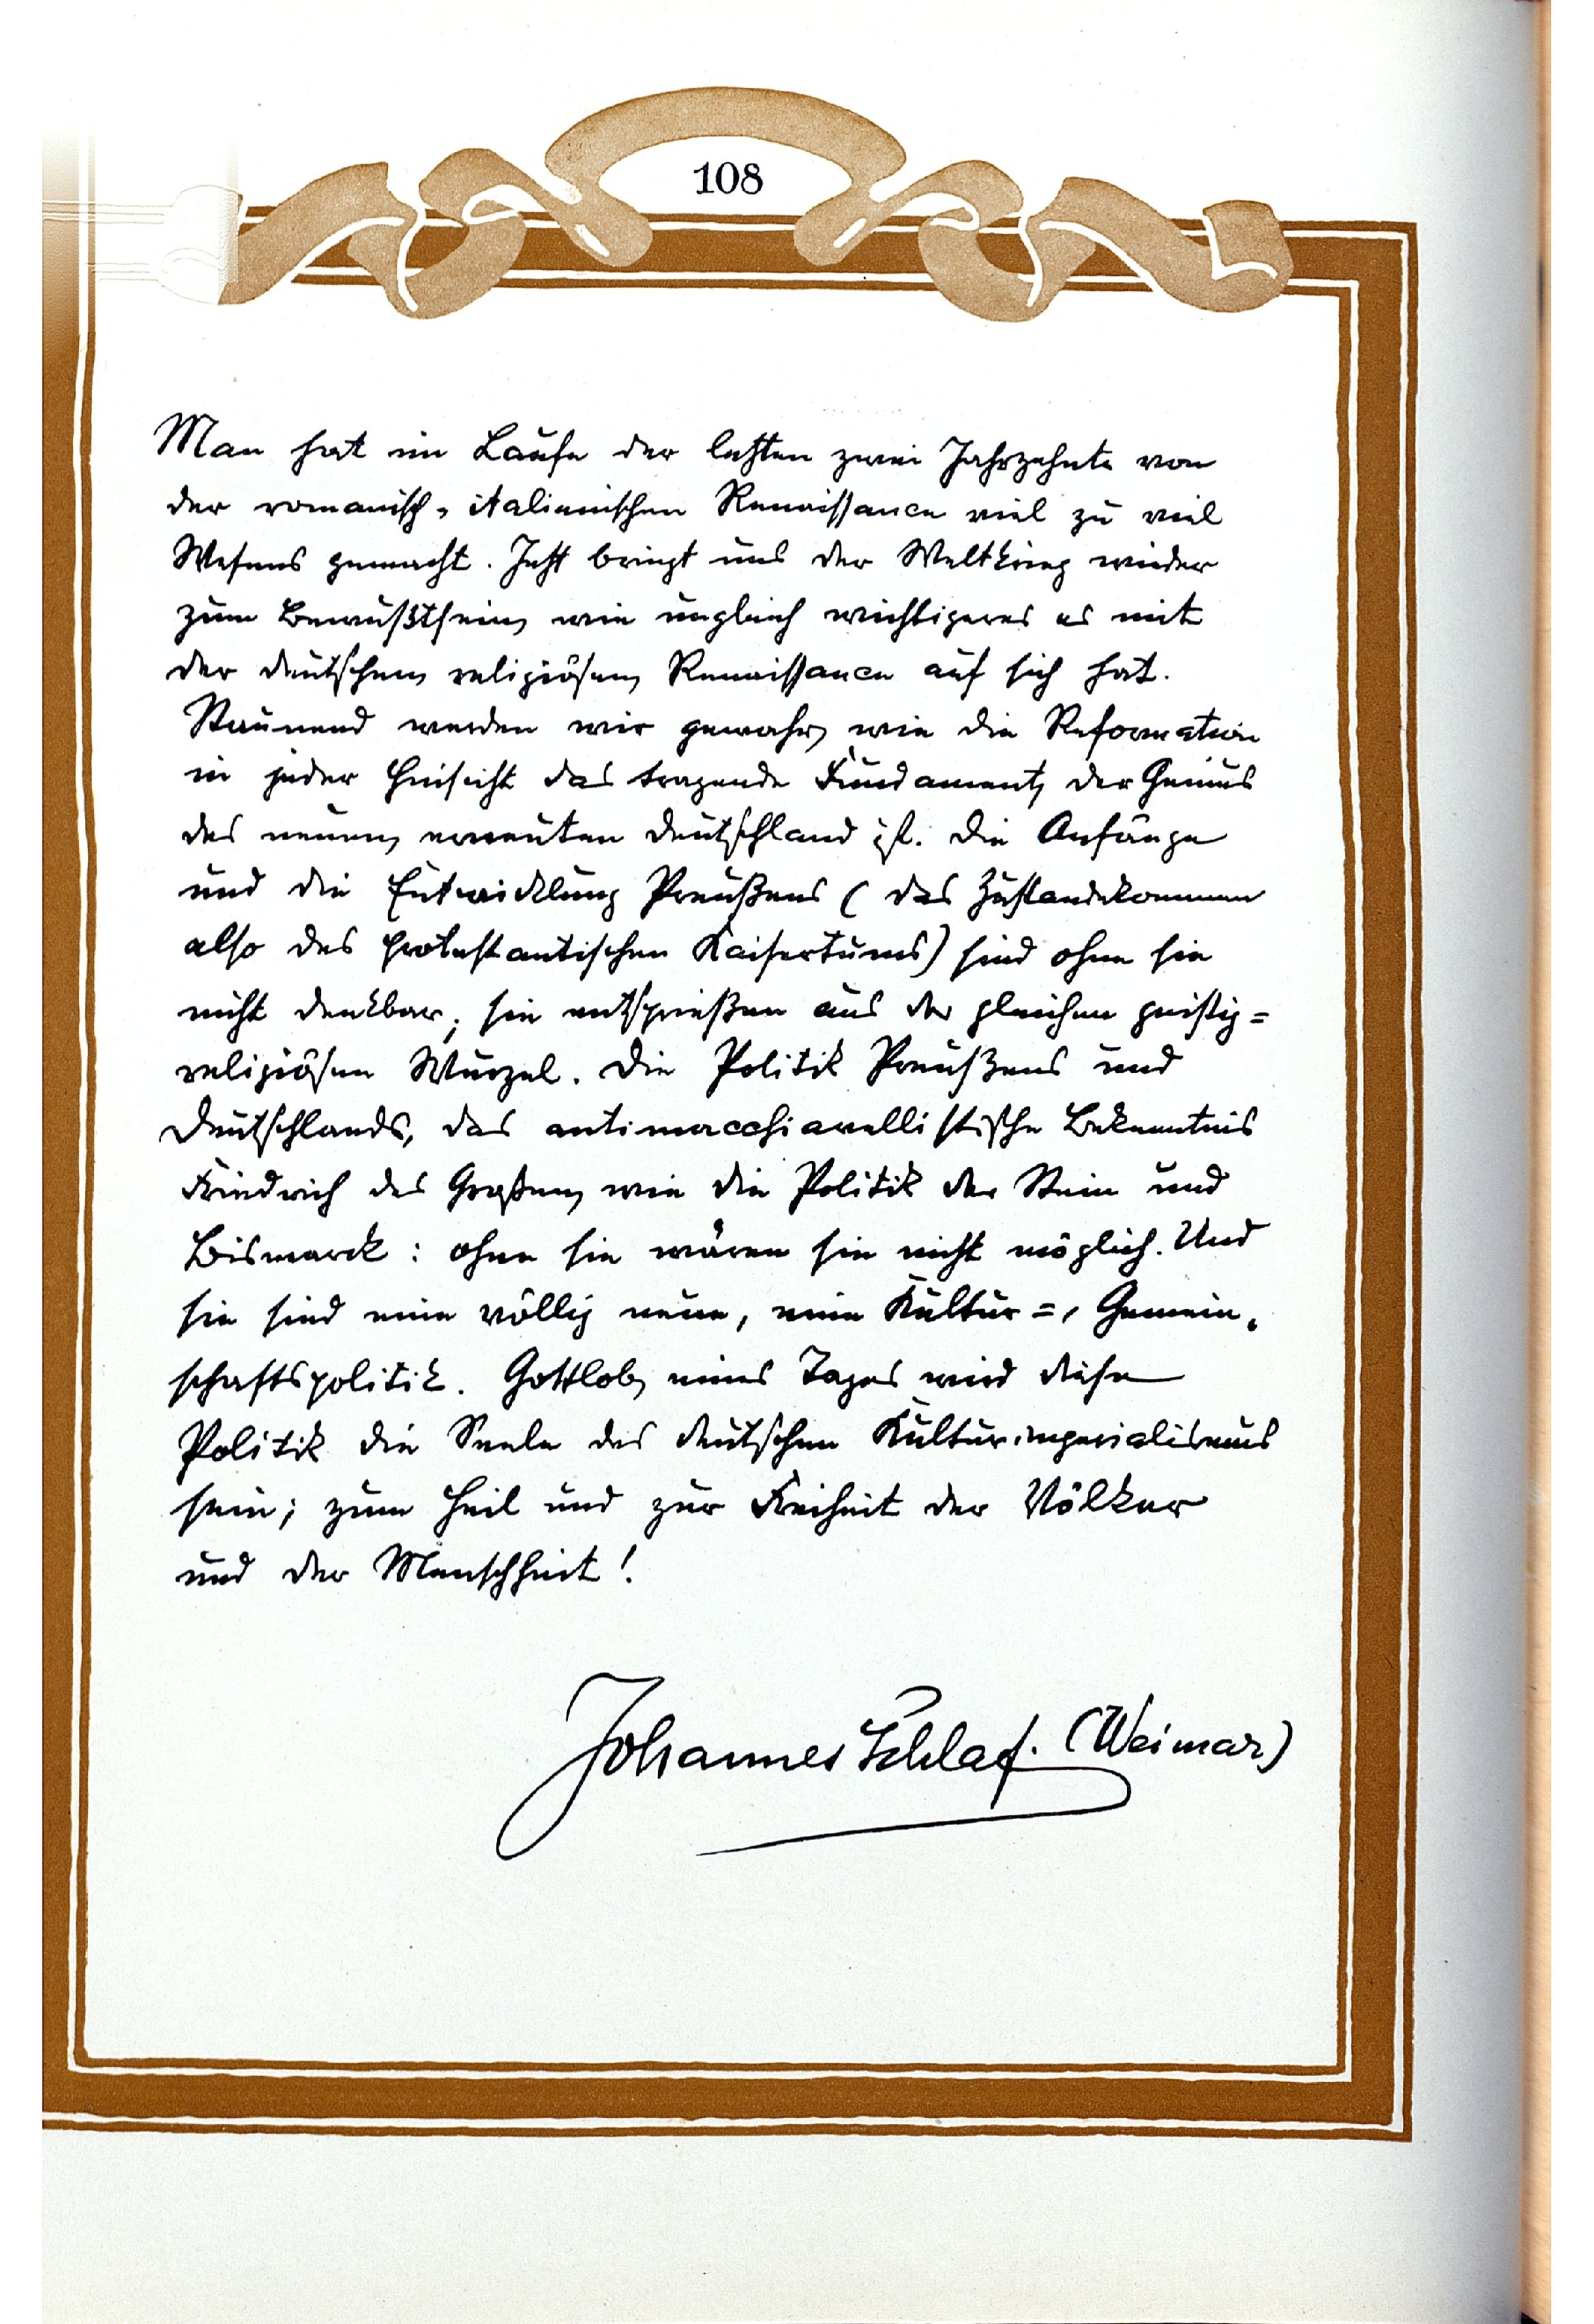 108
Man hat im Laufe der letzten zwei Jahrzehnte von
der romanisch-italienischen Renaissance viel zu viel
Wesens gemacht. Jetzt bringt uns der Weltkrieg wieder
zum Bewußtsein, wie ungleich wichtigeres es mit
der deutschen, religiösen, Renaissance auf sich hat.
Staunend werden wir gewahr, wie die Reformation
in jeder Hinsicht das tragende Fundament, der Genius
des neuen, erneuten Deutschland ist. Die Anfänge
und die Entwicklung Preußens (das Zustandekommen
also des protestantischen Kaisertums) sind ohne sie
nicht denkbar; sie entsprießen aus der gleichen geistig=
religiösen Wurzel. Die Politik Preußens und
Deutschlands, das antimacchiavellistische Bekenntnis
Friedrich des Großen, wie die Politik der Stein und
Bismarck: ohne sie wären sie nicht möglich. Und
sie sind eine völlig neue, eine Kultur=, Gemein-
schaftspolitik. Gottlob, eines Tages wird diese
Politik die Seele des deutschen Kulturimperialismus
sein; zum Heil und zur Freiheit der Völker
und der Menschheit!
Johannes Schlaf. (Weimar)